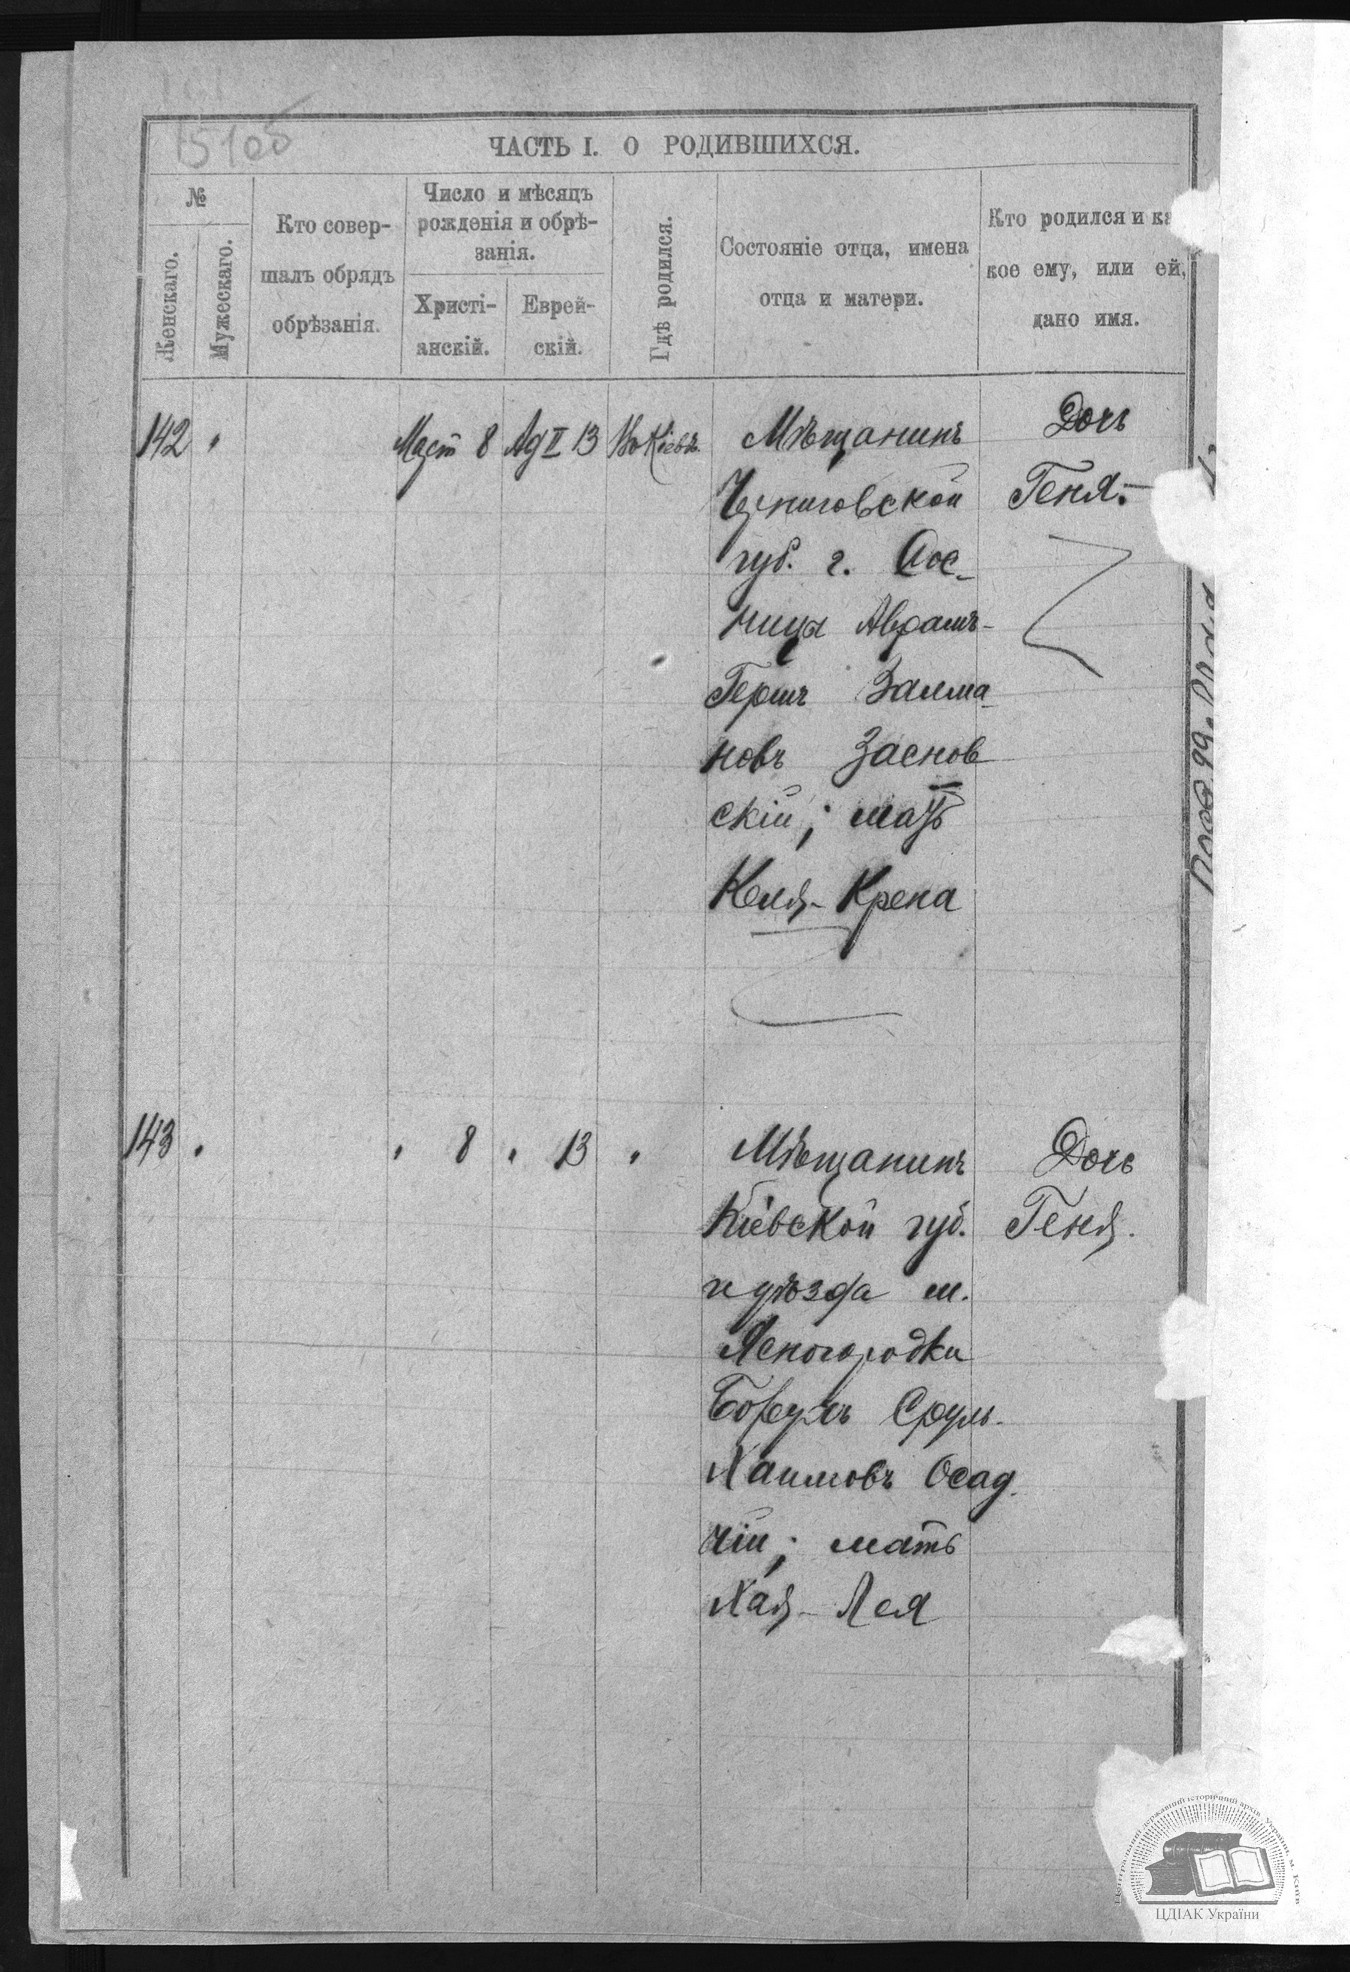 ЧАСТЬ I. О РОДИВШИХСЯ.
№
Женскаго.
Мужескаго.
Кто совер-
шалъ обрядъ
обрѣзанія.
Число и мѣсяцъ
рожденія и обрѣ-
занія.
Христі-
анскій.
Еврей-
скій.
Гдѣ родился.
Состояніе отца, имена
отца и матери.
Кто родился и ка
кое ему, или ей,
дано имя.
142 " Март 8 Ад II 13 Въ Кіевѣ.
Мѣщанинъ
Черниговской
губ. г. Сос-
ницы Аврамъ-
Гершъ Залма-
новъ Заснов
скій; мать
Келя-Крена
Дочь
Геня.-
143 " " 8 " 13 "
Мѣщанинъ
Кіевской губ.
и уѣзда м.
Ясногородки
Сруль-
Хаимовъ Осад-
чій; мать
Хая-Лея
Дочь
Геня.
Центральний державний історичний архів України, м. Київ
ЦДІАК України